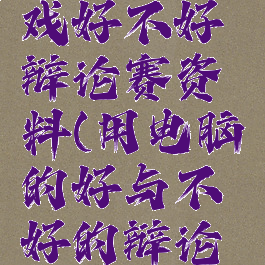 戏好不好
辩论赛资
料(用电脑
的好与不
好的辩论